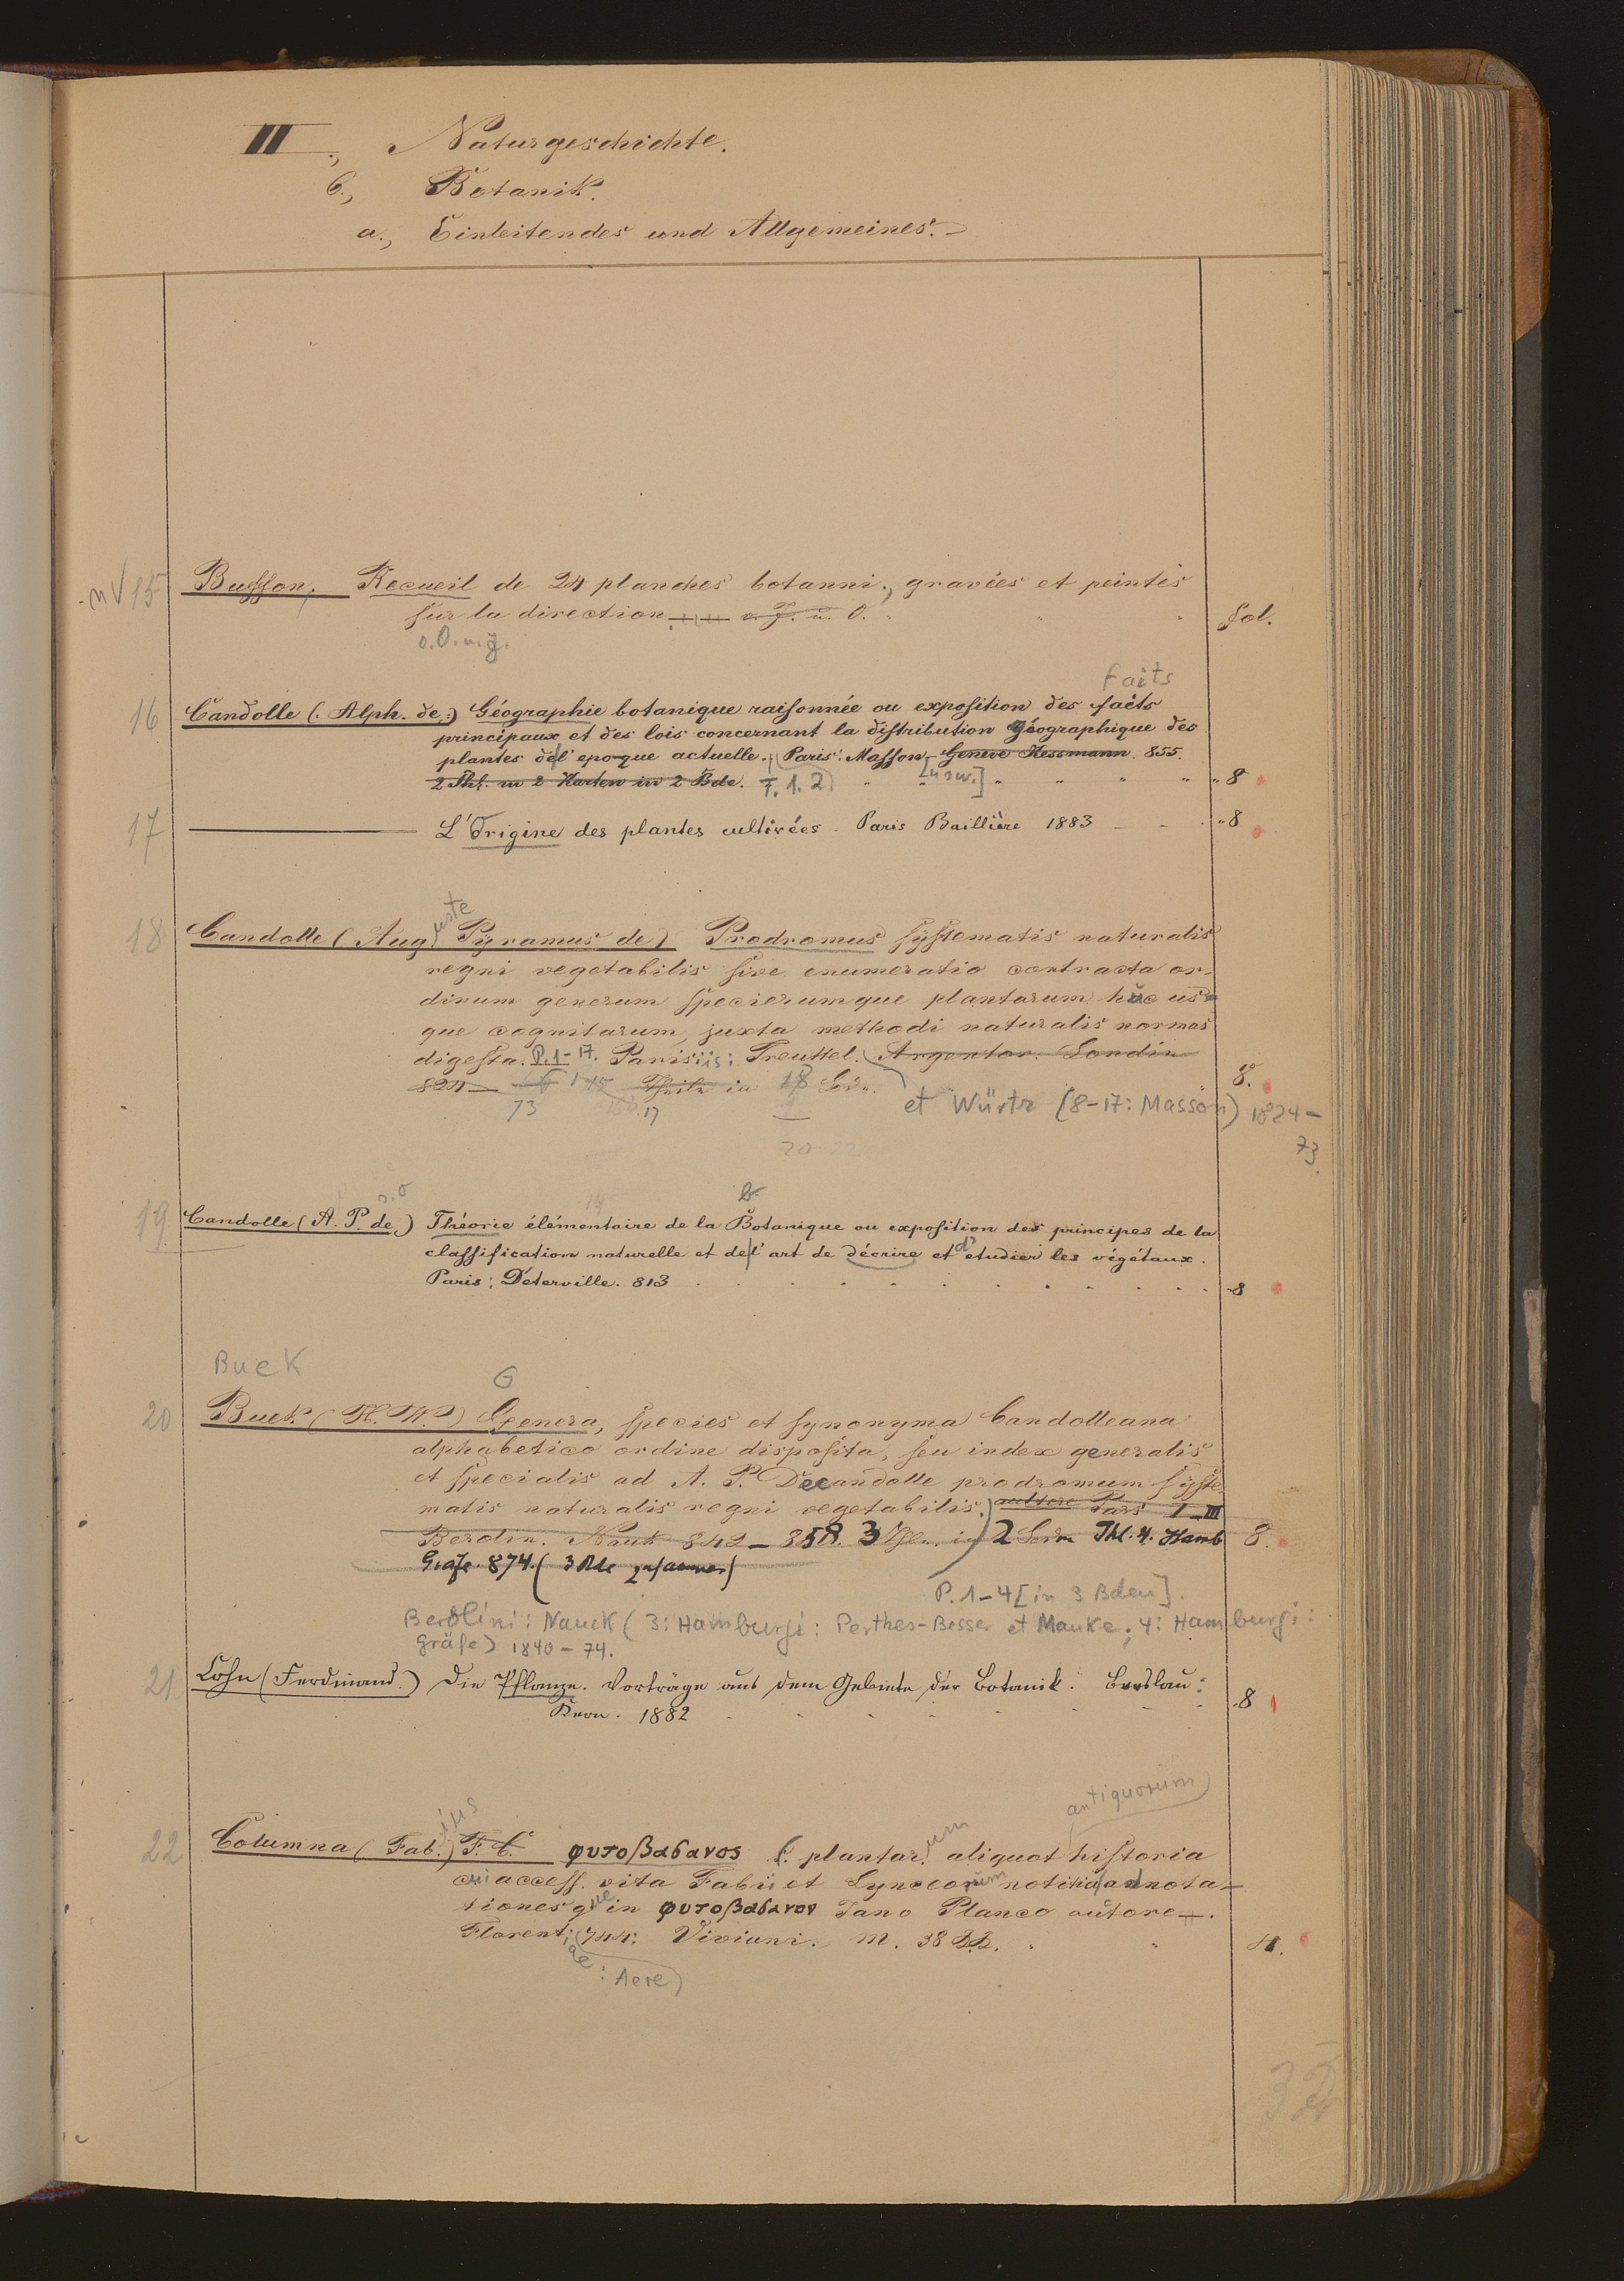 III., Naturgeschichte.
6., Botanik.
a., Einleitendes und Allgemeines.
15 Buffon, Recueil de 24 planches botanni., gravées et peintes
sur la direction v. J. u. O. fol.
o. O. u. J.
faits
16 Candolle (Alph. de:) Géographie botanique raisonnée ou exposition des faits
principaux et des lois concernant la distribution Géographique des
plantes de l'epoque actuelle. Paris: Masson, Geneve Kessmann. 855.
2 Thl. m 2 Karten in 2 Bde. T. 1. 2. [usw.] 8
17 L'Origine des plantes cultivées. Paris Baillière 1883 8
uste
18 Candolle (Aug. Pyramus de) Prodromus systematis naturalis
regni vegetabilis sive enumeratio contracta or-
dinum generum specierumque plantarum huc us-
que cognitarum, juxta methodi naturalis normas
digesta. P. 1-17. Parisiis: Treuttel. Argentor. Londin
824 — in 8.
73 17 et Würtz (8-17: Masson) 1824-
73.
b.
19. Candolle (A. P. de.) Théorie élémentaire de la Botanique ou exposition des principes de la
classification naturelle et de l'art de décrire et d'etudier les végétaux.
Paris: Déterville. 813 8
Buek
G
20 Buek (H. W.) Genera, species et synonyma Candolleana
alphabetico ordine disposita, seu index generalis
et specialis ad A. P. Decandolle prodromum syste-
matis naturalis regni vegetabilis. Pars I-III
Berolin. Nauk 842-858. 3 Thle. in 2 Bdn Thl. 4. Hamb 8.
Gräfe. 874. (3 Bde zusammen)
P. 1-4 [in 3 Bden].
Berolini: Nauck (3: Hamburgi: Perthes-Besser et Mauke, 4: Hamburgi:
Gräfe) 1840-74.
21. Cohn (Ferdinand.) Die Pflanze. Vorträge aus dem Gebiete der Botanik. Breslau:
Kern. 1882 8
antiquorum
ius um
22 Columna (Fab.) F. C. φυτοβασανος s. plantar. aliquot historia
cui access. vita Fabii et Lynceorum notitia adnota-
tiones que in φυτοβασανον Jano Planco autore.
Florent; 744. Viviani. M. 38 4.
ae
: Aere
32